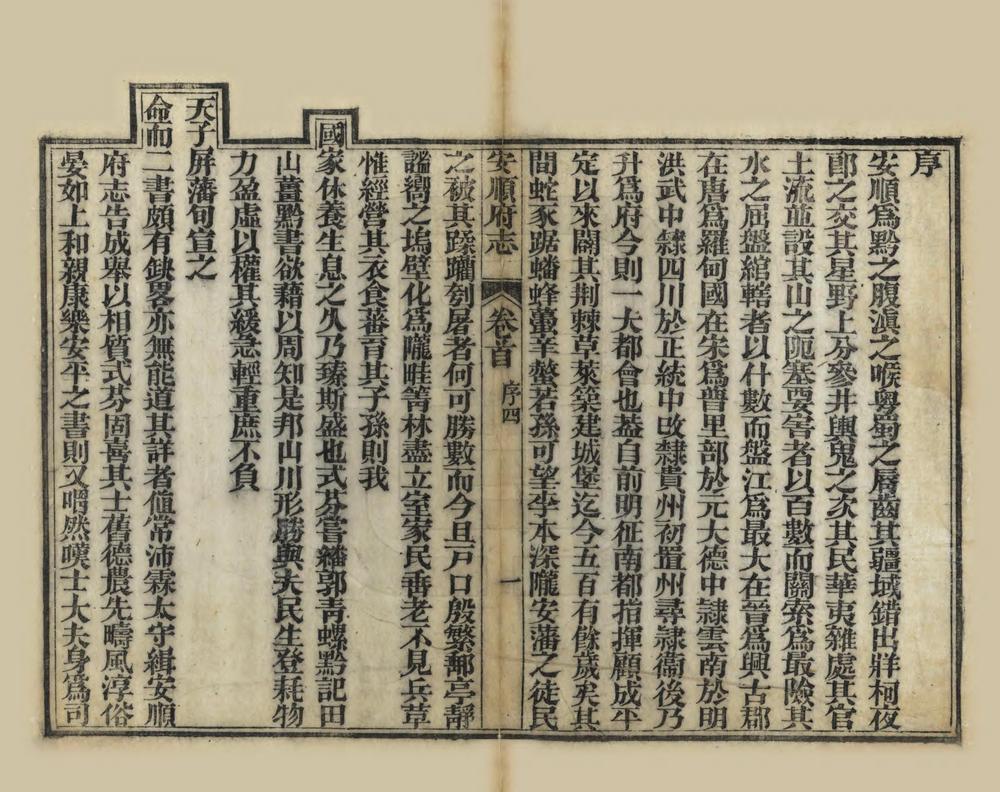 序
安順爲黔之腹滇之喉粤蜀之脣齒其疆域錯出牂柯夜
郎之交其星野上分參井輿鬼之次其民華夷雜處其官
土流並設其山之阨塞要害者以百數而關索爲最險其
水之屈盤綰轄者以什數而盤江爲最大在晉爲興古郡
在唐爲羅甸國在宋爲普里部於元大德中隷雲南於明
洪武中隷四川於正統中改隷貴州初置州尋隷衞後乃
升爲府今則一大都會也葢自前明征南都指揮顧成平
定以來闢其荆棘草萊築建城堡迄今五百有餘歲矣其
間蛇豕踞蟠蜂蠆辛螫若孫可望李本深隴安藩之徒民
安順府志
卷首
序四
一
之被其蹂躪刳屠者何可勝數而今且戸口殷繁郵亭靜
謐嚮之塢壁化爲隴畦箐林盡立室家民垂老不見兵革
惟經營其衣食蕃育其子孫則我
國家休養生息之久乃臻斯盛也式芬嘗繙郭靑螺黔記田
山薑黔書欲藉以周知是邦山川形勝與夫民生登耗物
力盈虛以權其緩急輕重庶不負
天子屏藩旬宣之
命而二書頗有缺畧亦無能道其詳者値常沛霖太守緝安順
府志告成舉以相質式芬固喜其士舊德農先疇風淳俗
晏如上和親康樂安平之書則又喟然嘆士大夫身爲司